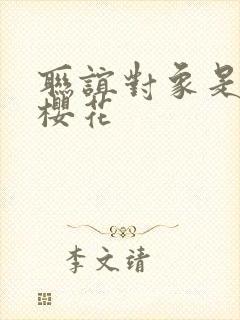 聯誼對象是
櫻花
李文靖